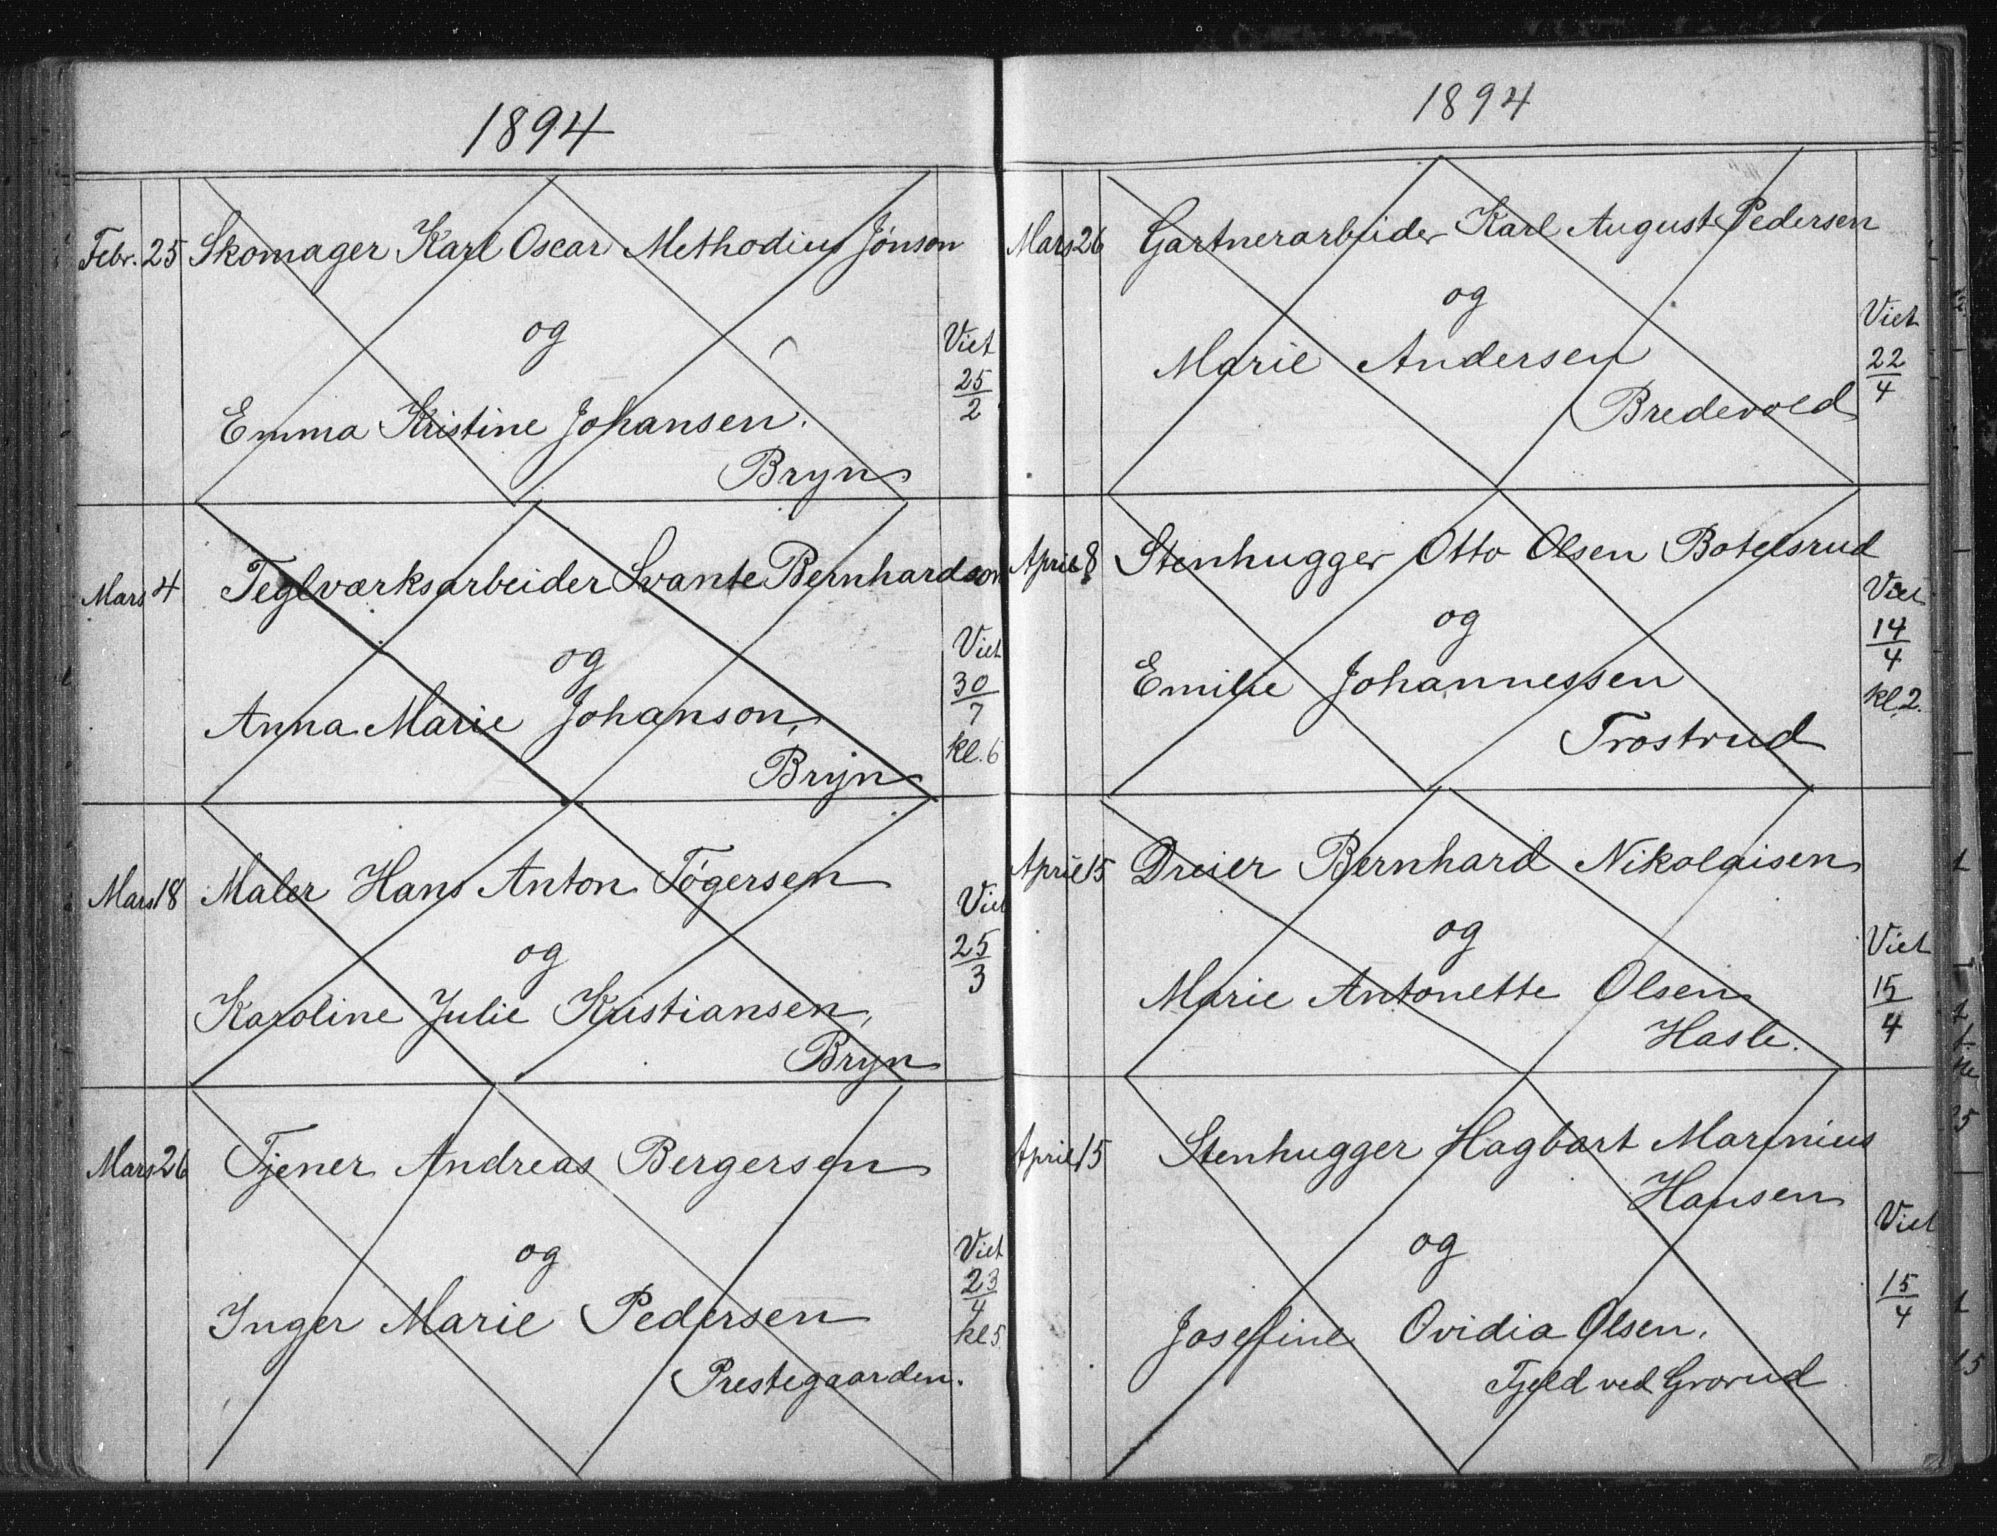 1894
Febr. 25 Skomager Karl Oscar Methodius Jønson
og
Viet
25/2
Emma Kristine Johansen.
Bryn
Mars 4 Teglværksarbeider Svante Bernhardson
og
Viet
30/7
kl. 6
Anna Marie Johanson,
Bryn
Mars 18 Maler Hans Anton Tøgersen
og
Viet
25/3
Karoline Julie Kristiansen,
Bryn
Mars 26 Tjener Andreas Bergersen
og
Viet
23/4
kl 5
Inger Marie Pedersen
Prestegaarden.
1894
Mars 26 Gartnerarbeider Karl August Pedersen
og
Viet
22/4
Marie Andersen
Bredevold
April 8 Stenhugger Otto Olsen Botelsrud
og
Viet
14/4
kl. 2.
Emilie Johannessen
Trostrud
April 15 Dreier Bernhard Nikolaisen
og
Viet
15/4
Marie Antonette Olsen
Hasle.
April 15 Stenhugger Hagbart Marinius
Hansen
og
Viet
15/4
Josefine Ovidia Olsen.
Fjeld ved Grorud